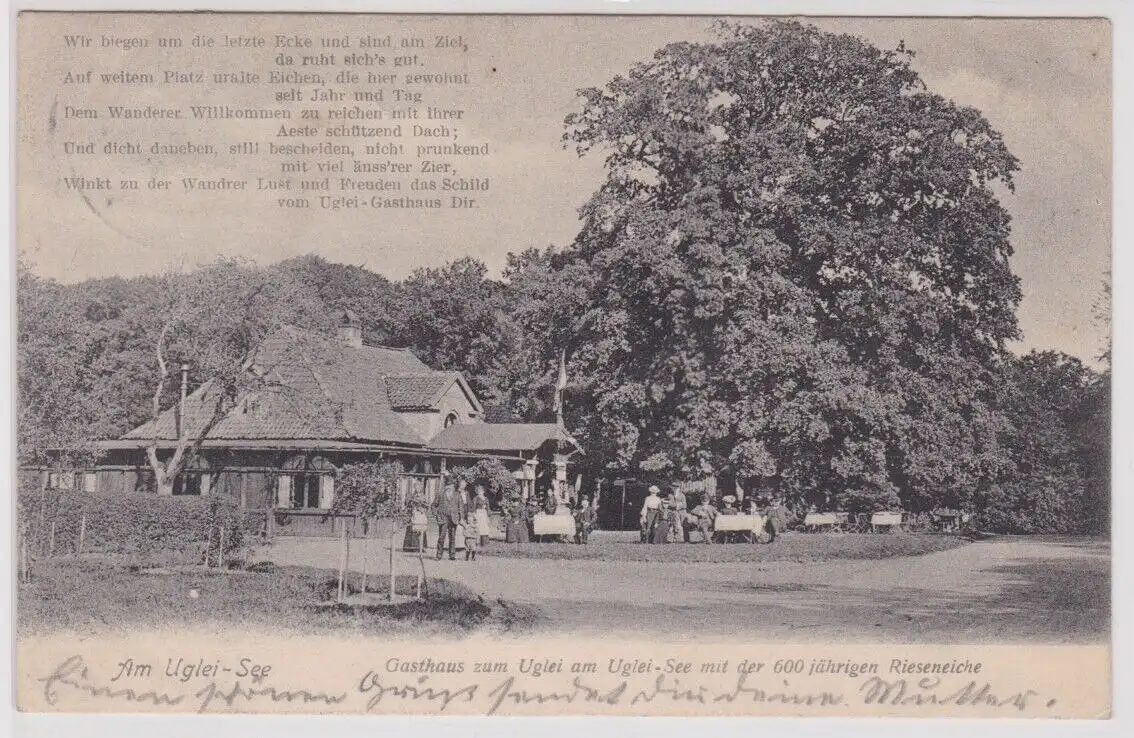 Wir biegen um die letzte Ecke und sind am Ziel,
da ruht sich's gut.
Auf weitem Platz uralte Eichen, die hier gewohnt
seit Jahr und Tag
Dem Wanderer Willkommen zu reichen mit ihrer
Aeste schützend Dach;
Und dicht daneben, still bescheiden, nicht prunkend
mit viel äuss'rer Zier,
Winkt zu der Wandrer Lust und Freuden das Schild
vom Uglei-Gasthaus Dir.
Am Uglei-See
Gasthaus zum Uglei am Uglei-See mit der 600 jährigen Rieseneiche
Einen schönen Gruß sendet Dir Deine Mutter.